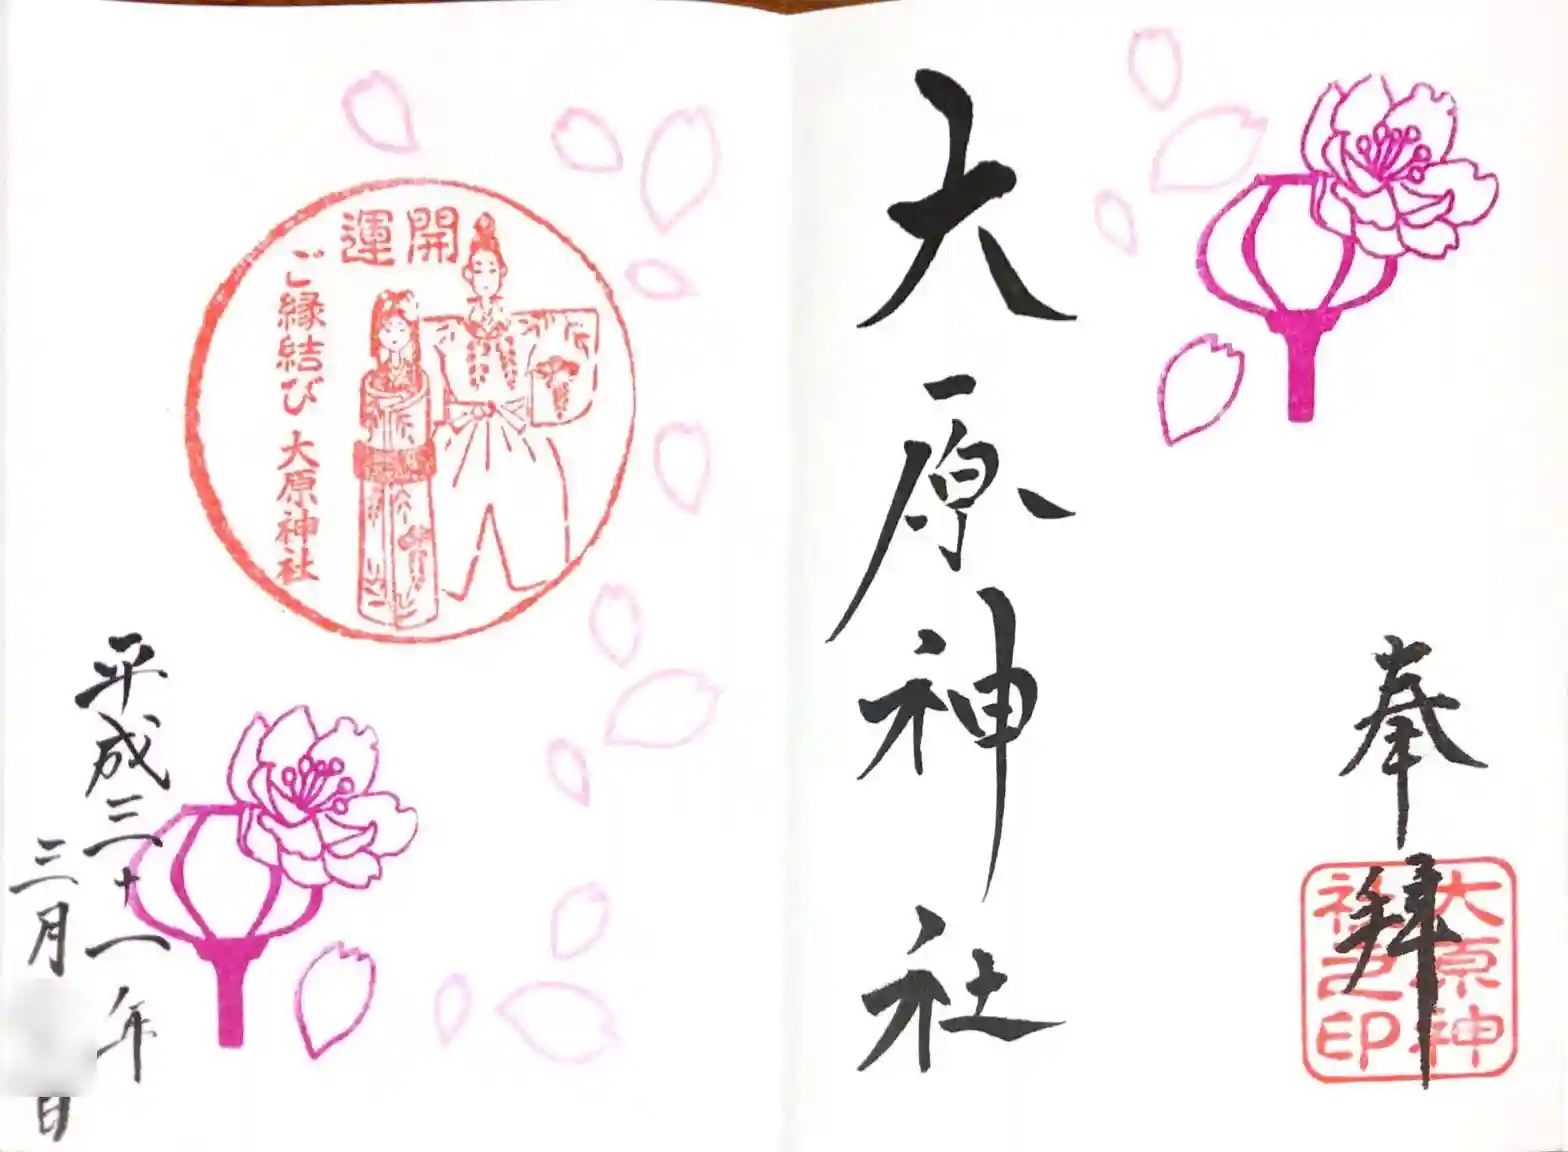 奉拝
大原神社之印
大原神社
開運
ご縁結び 大原神社
平成三十一年
三月
日